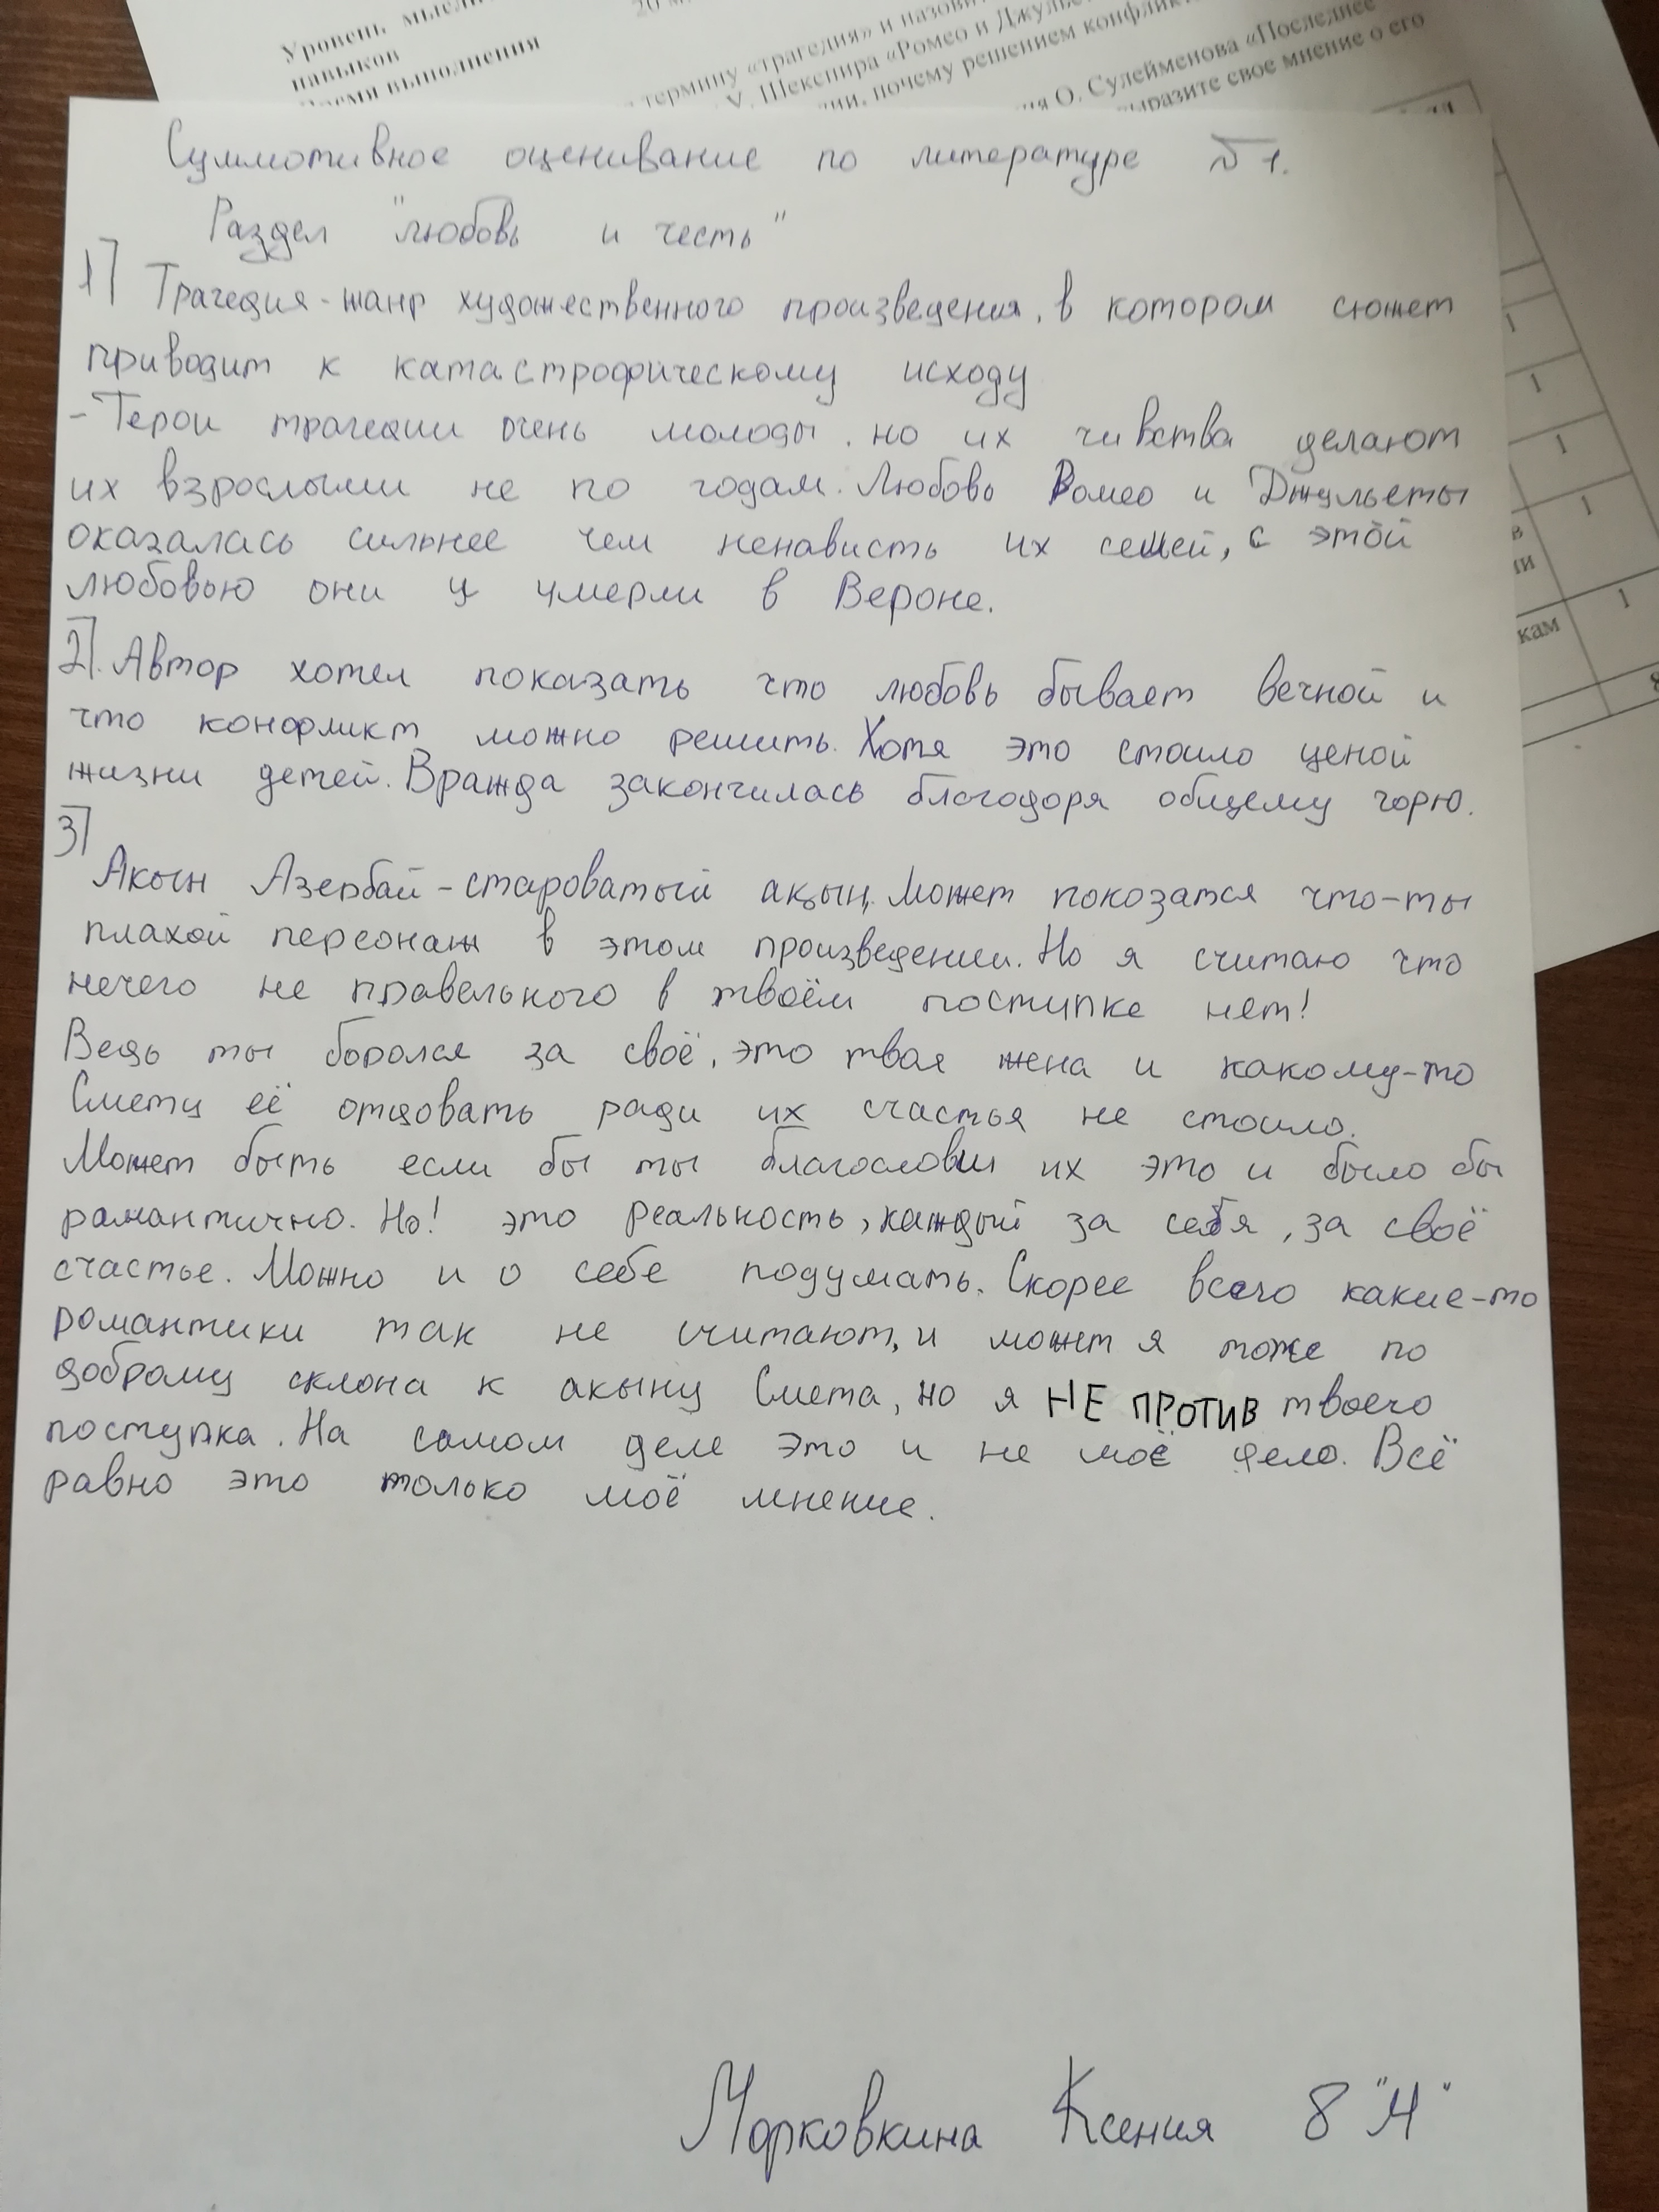 Уровень мысли
навыков
Время выполнения
20 м
термину «трагедия» и назови
У. Шекспира «Ромео и Джулье
ии, почему решением конфлик
ия О. Сулейменова «Последнее
выразите свое мнение о его
Суммотивное оценивание по литературе №1.
Раздел "любовь и честь"
1] Трагедия-жанр художественного произведения, в котором сюжет
приводит к катастрофическому исходу
-Герои трагедии очень молоды, но их чивства делают
их взрослыми не по годам. Любовь Ромео и Джульеты
оказалась сильнее чем ненависть их семей, с этой
любовью они и умерли в Вероне.
2]. Автор хотел показать что любовь бывает вечной и
что конфликт можно решить. Хотя это стоило ценой
жизни детей. Вражда закончилась благодоря общему горю.
3]
Акын Азербай-староватый акын. Может показатся что-ты
плахой персонаж в этом произведении. Но я считаю что
нечего не правельного в твоём поступке нет!
Ведь ты боролся за своё, это твоя жена и какому-то
Смету её отдовать ради их счастья не стоило.
Может быть если бы ты благословил их это и было бы
рамантично. Но! это реальность, каждый за себя, за своё
счастье. Можно и о себе подумать. Скорее всего какие-то
романтики так не считают, и может я тоже по
доброму склона к акыну Смета, но я НЕ ПРОТИВ твоего
поступка. На самом деле это и не моё дело. Всё
равно это только моё мнение.
в
ии
кам
1
1
1
1
1
8
Морковкина Ксения 8 "И"